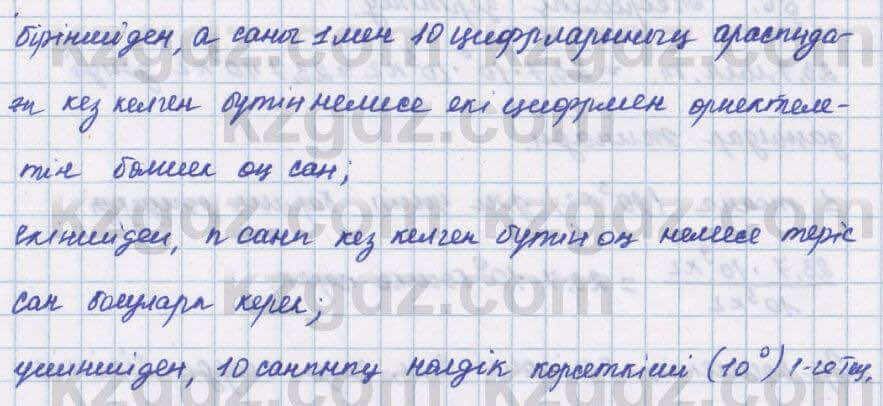 біріншіден, а саны 1 мен 10 цифрларының арасында-
ғы кез келген бүтін немесе екі цифрмен өрнектеле-
тін бөлшек оң сан;
екіншіден, n саны кез келген бүтін оң немесе теріс
сан болулары керек;
үшіншіден, 10 санының нөлдік көрсеткіші (10⁰) 1-ге тең.
kzgdz.com
kzgdz.com
kzgdz.com